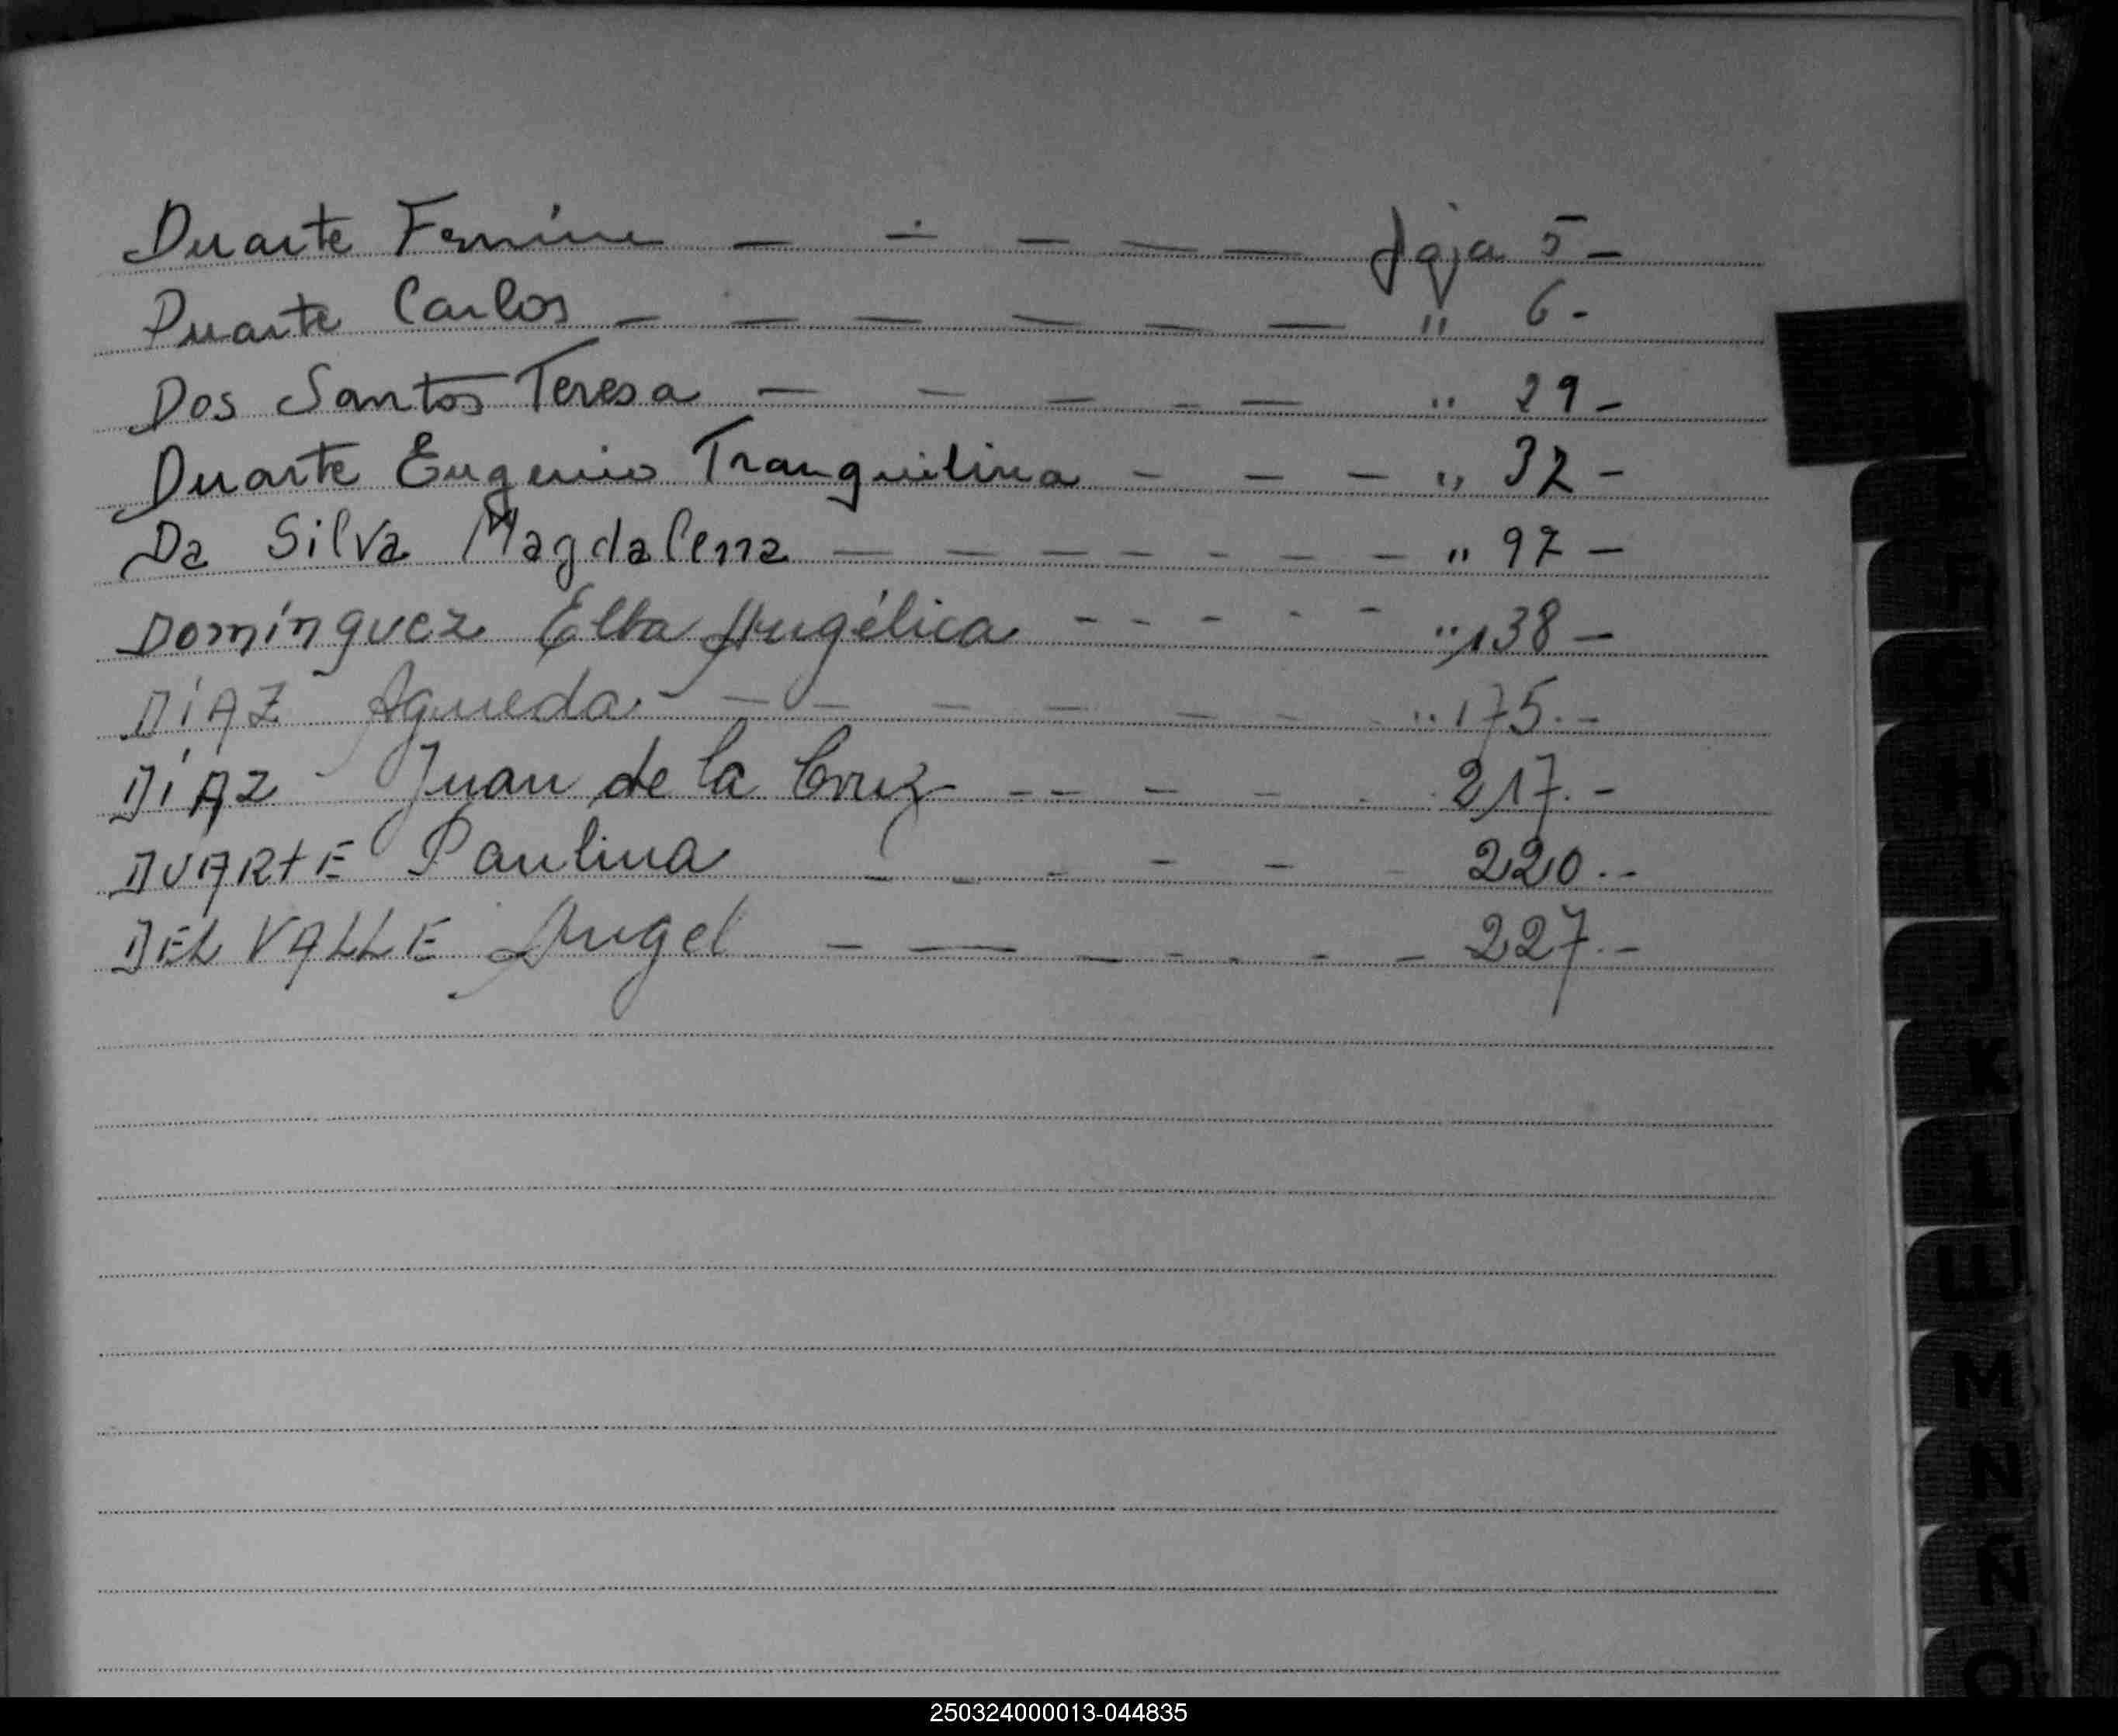 Duarte Fermine — — — — — foja 5 —
Duarte Carlos — — — — — — " 6 -
Dos Santos Teresa — — — — — " 29 —
Duarte Eugenio Tranquilina — — — " 32 —
Da Silva Magdalena — — — — — — — " 97 —
Domínguez Elba Angélica - - - - - " 138 —
DÍAZ Agueda - — — — — — - " 175. -
DÍAZ Juan de la Cruz - - - - 217. -
DUARTE Paulina - - - - - 220. -
DEL VALLE Angel - — — - - - - 227. -
K
L
LL
M
N
Ñ
O
250324000013-044835